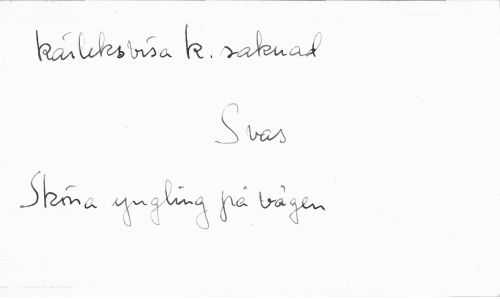 kärleksvisa k. saknad
Svas
Sköna yngling på vägen